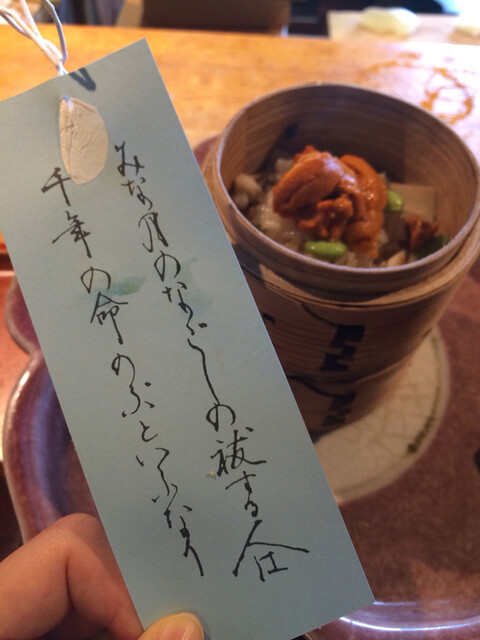 みな月のなごしの祓する人は
千年の命のぶといふなり